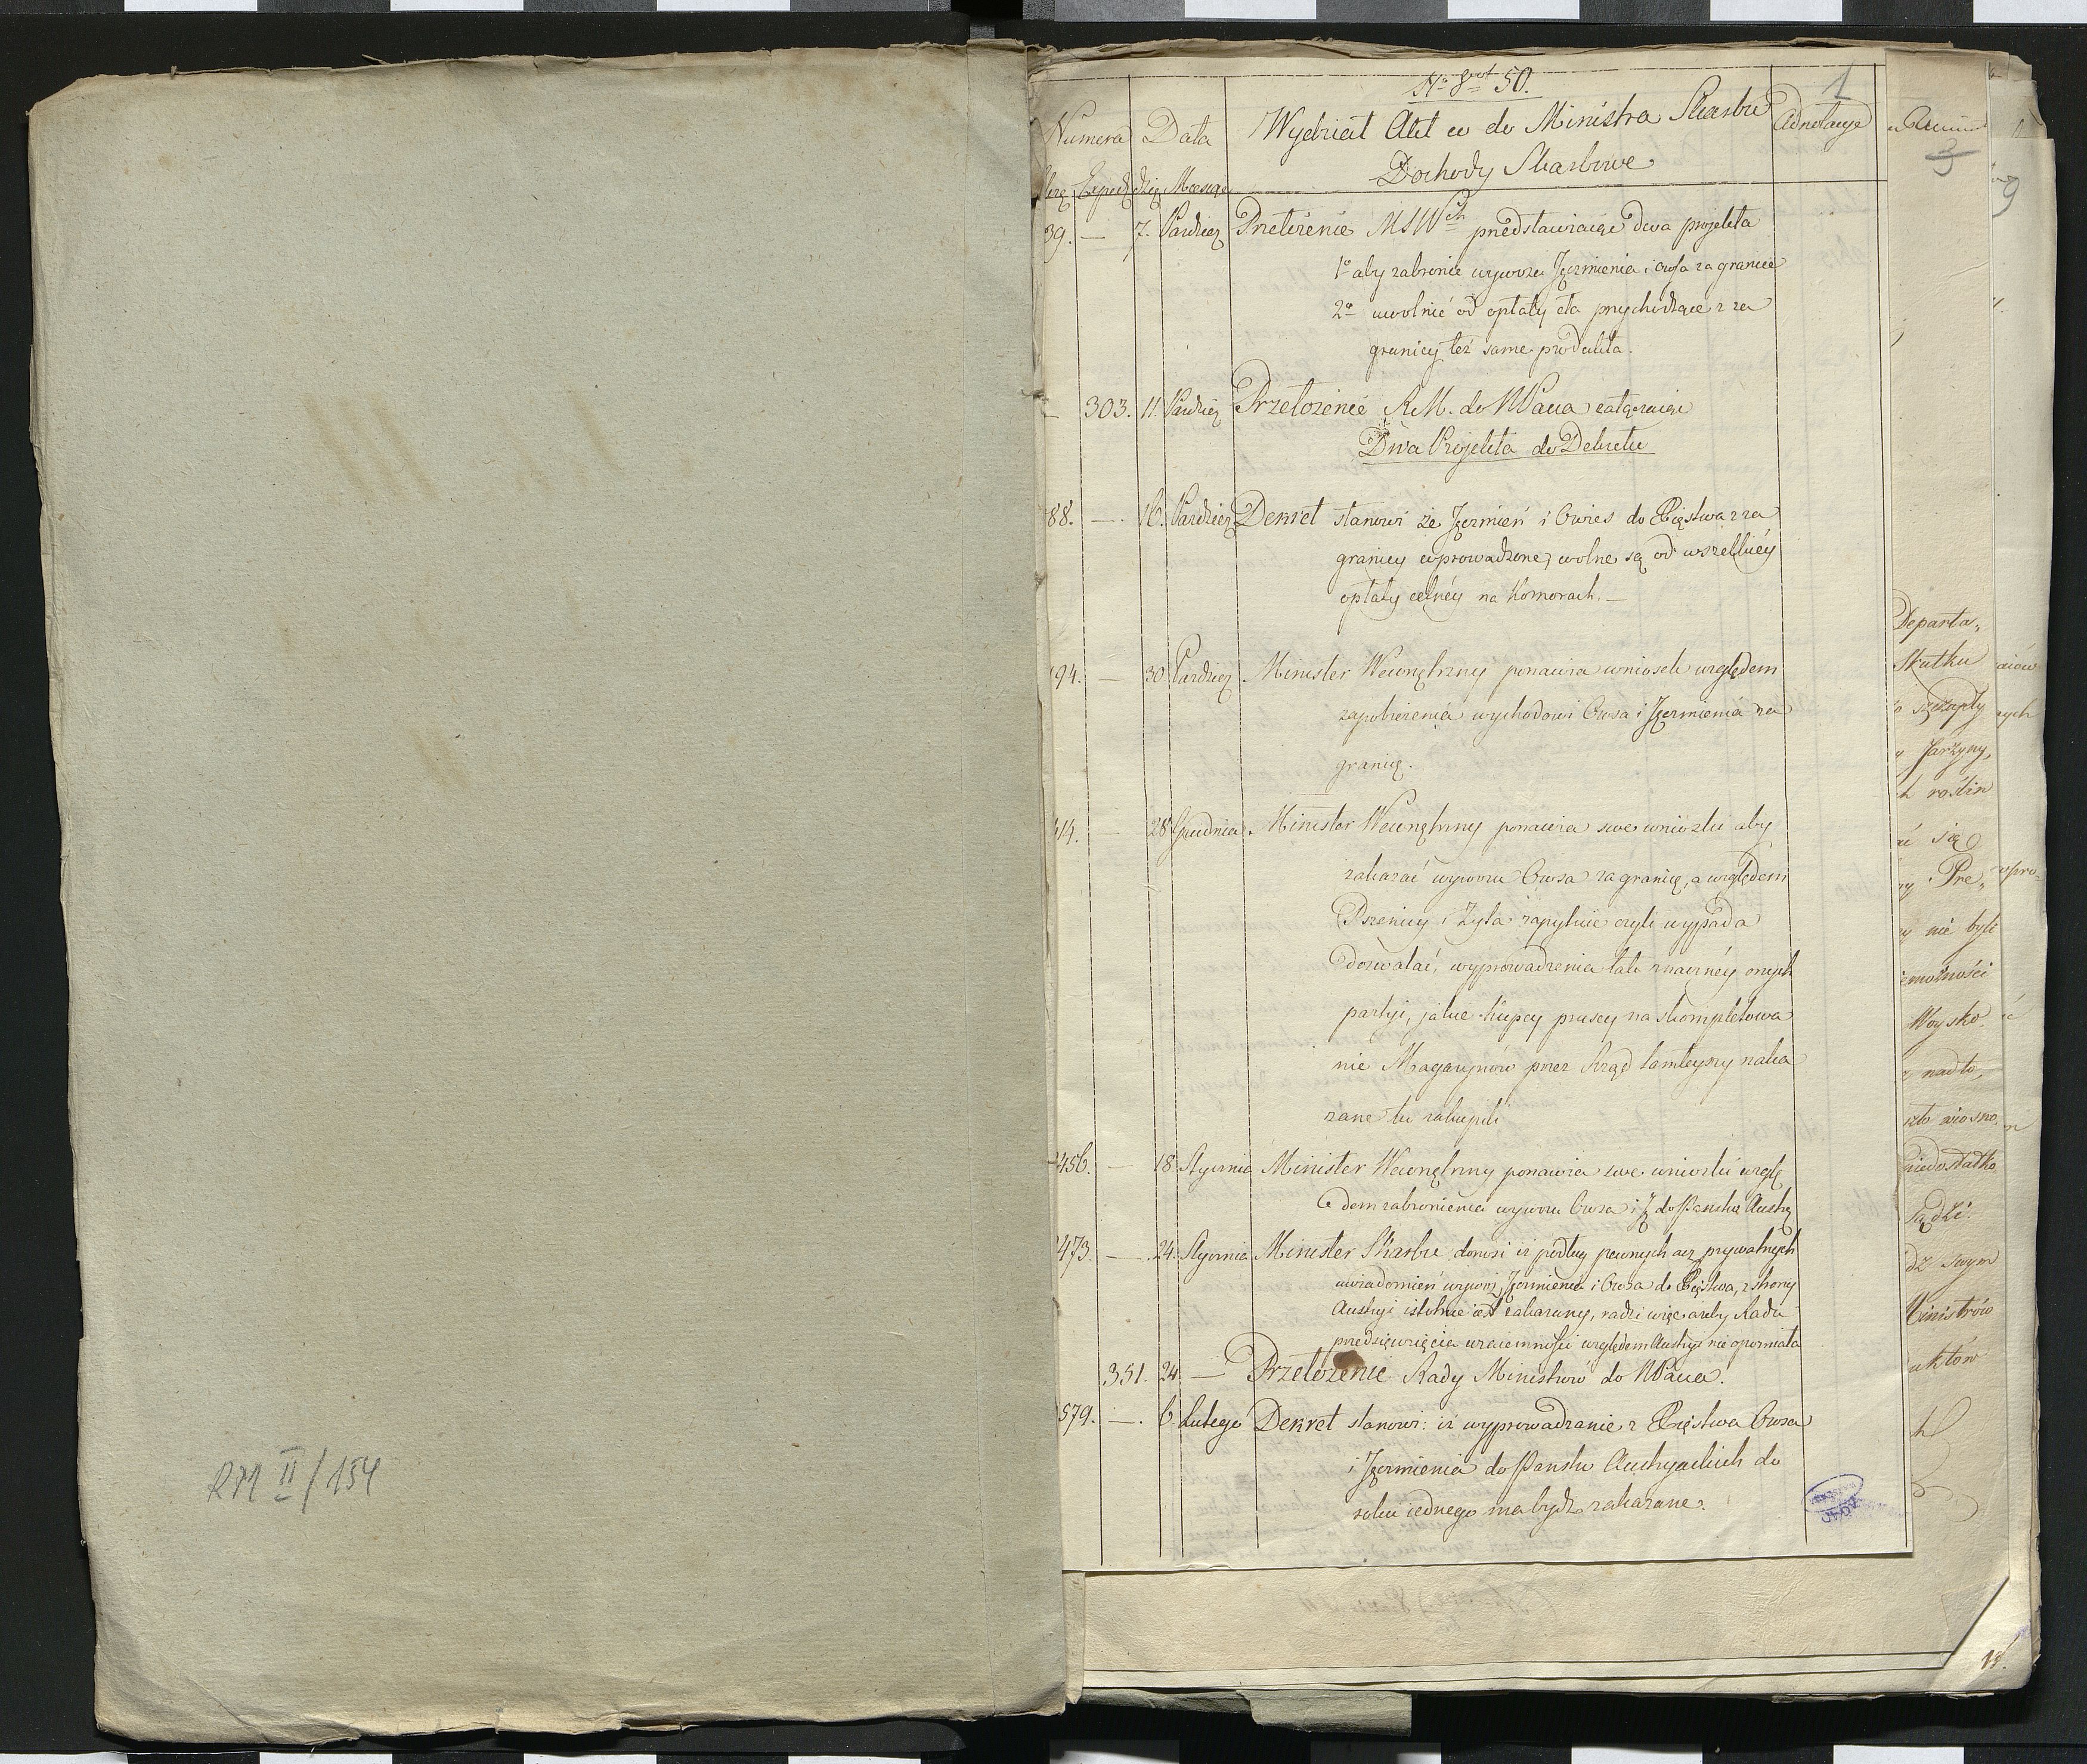 RM II/154
1
50.
Numera Data Wydział Akt w do Ministra Skarbu Adnotacye
Dochody Skarbowe
Exped. Miesiąc
39. — 7. Paździer Przełożenie MSW przedstawiaiące dwa projekta
1º aby zabronić wywozu Jęczmienia i owsa za granicę
2º uwolnić od opłaty cła przychodzące z za
granicy też same produkta.
303. 11. Paździer Przełożenie R.M. do NPana załączaiąc
Dwa Projekta do Dekretu
88. — 16. Paździer Dekret stanowi że Jęczmień i Owies do Xięstwa z za
granicy wprowadzone, wolne są od wszelkiéy
opłaty celnéy na Komorach. —
194. — 30 Paździer Minister Wewnętrzny ponawia wniosek względem
zapobieżenia wychodowi Owsa i Jęczmienia za
granicę.
414. — 28 Grudnia Minister Wewnętrzny ponawia swe wnioski aby
zakazać wywozu Owsa za granicę, a względem
Pszenicy i Żyta zapytuie czyli wypada
dozwalać, wyprowadzenia tak znacznéy onych
partyi, jakie kupcy pruscy na skompletowa
nie Magazynów przez Rząd tamteyszy naka
zane tu zakupili
456. — 18 Stycznia Minister Wewnętrzny ponawia swe wnioski wzglę
dem zabronienia wywozu Owsa i J. do Państw Austry
473. — 24. Stycznia Minister Skarbu donosi iż podług pewnych acz prywatnych
uwiadomień wywóz Jęczmienia i Owsa do Xięstwa, z strony
Austryi istotnie iest zakazany, radzi więc ażeby Rada
przedsięwzięcia wzaiemności względem Austryi nie opóźniała
351. 24 — Przełożenie Rady Ministrów do NPana.
579. — 6. Lutego Dekret stanowi: iż wyprowadzanie z Xięstwa Owsa
i Jęczmienia do Państw Austryackich do
roku iednego ma bydź zakazane.
3
9
Departa„
Skutku
szczupły
Jarzyny,
roślin
się
Pre„
nie byli
Woysko
nadto,
wiosno
niedostatko
sądzi
swym
Ministrów
uktów